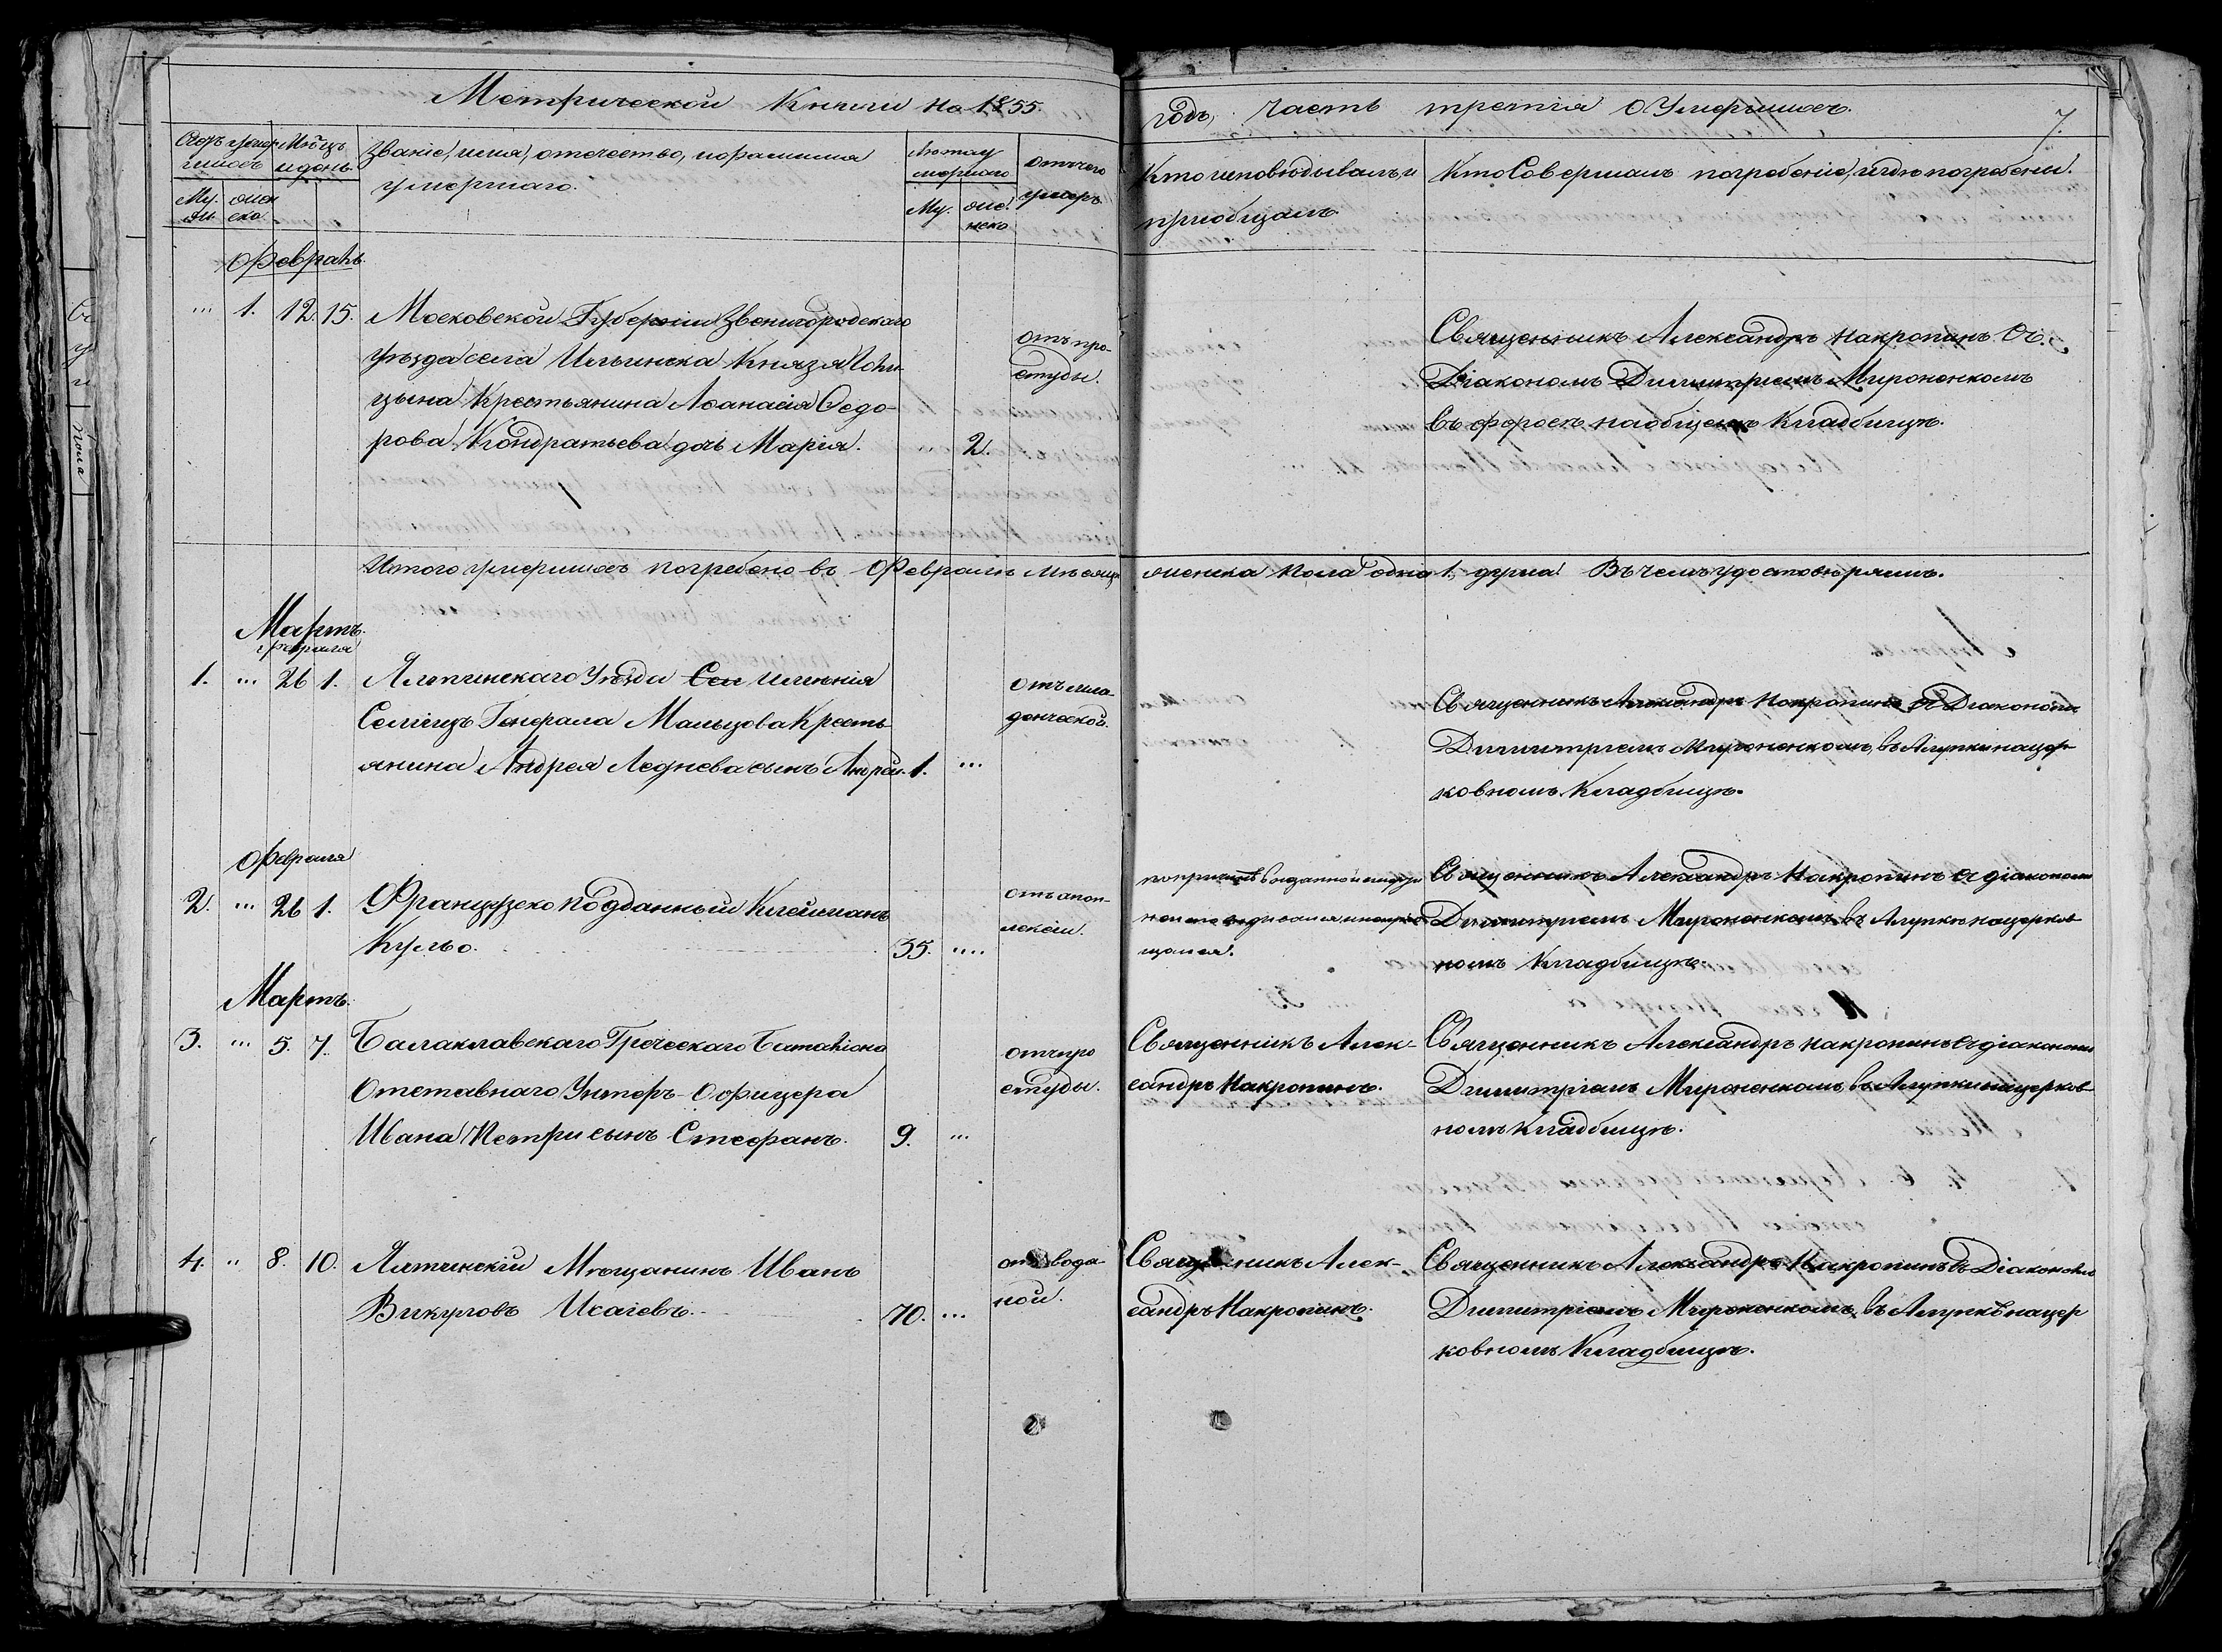 Метрической Книги на 1855.
годъ, часть третія о Умершихъ.
7.
Счетъ умер-
шихъ
Мѣсцъ
и день.
Званіе, имя, отечество, и фамилия
умершаго.
Лѣта у
мершаго
отъ чего
умеръ
Кто исповѣдывалъ, и
приобщалъ.
Кто Совершалъ погребеніе, и гдѣ погребены.
Му.
жи
женс
ска.
Му.
жен.
ска
Февраль.
... 1. 12. 15. Московской Губерніи Звенигородскаго
уѣзда села Ильинска Князя Голи-
цына Крестьянина Афанасія Федо-
рова Кондратьева дочь Марія. 2.
отъ про-
студы.
Священникъ Александръ Накропинъ Съ.
Діакономъ Димитріемъ Мироненкомъ
въ форосѣ на общемъ Кладбищѣ.
Итого умершихъ погребено въ Февралѣ мѣсяцѣ женска пола одна 1. душа. Въ чемъ удостовѣряемъ.
Мартъ.
февраля
1. ... 26 1. Ялтинскаго Уѣзда Сел имѣнія
Симеизъ Генерала Мальцова Кресть
янина Андрея Леднева сынъ Андрей. 1. ...
отъ мла-
денческой.
Священникъ Александръ Накропинъ съ Діакономъ
Димитріемъ Мироненкомъ, въ Алупки на цер-
ковномъ Кладбищѣ.
Февраля
2. ... 26 1. Французско подданный Клейманъ
Кульо. 55. ....
отъ апоп-
лексіи.
по причинѣ внезапной смерти
не исповѣдывался и не приоб-
щался.
Священникъ Александръ Накропинъ съ діакономъ
Димитріемъ Мироненкомъ въ Алупкѣ на церков-
номъ Кладбищѣ.
Мартъ.
3. ... 5. 7. Балаклавскаго Греческаго Баталіона
Отставнаго Унтеръ-Офицера
Ивана Петри сынъ Стефанъ. 9. ...
отъ про
студы.
Священникъ Алек-
сандръ Накропинъ.
Священникъ Александръ Накропинъ съ діакономъ
Димитріемъ Мироненкомъ, въ Алупки на церков-
номъ кладбищѣ.
4. .. 8. 10. Ялтинскій Мѣщанинъ Иванъ
Викуловъ Исаіевъ. 70. ...
отъ водя-
ной.
Священникъ Алек-
сандръ Накропинъ.
Священникъ Александръ Накропинъ съ Діакономъ
Димитріемъ Мироненкомъ, въ Алупкѣ на цер
ковномъ Кладбищѣ.
пола